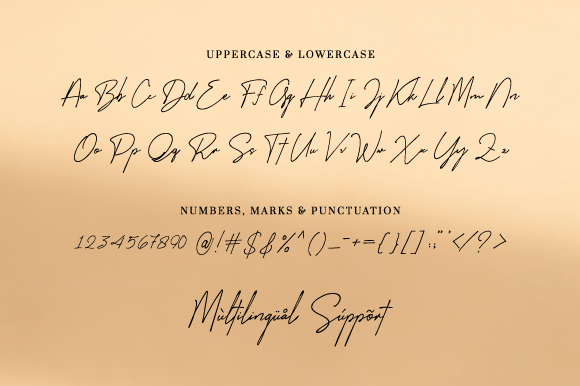 UPPERCASE & LOWERCASE
Aa Bb Cc Dd Ee Ff Gg Hh Ii Jj Kk Ll Mm Nn
Oo Pp Qq Rr Ss Tt Uu Vv Ww Xx Yy Zz
NUMBERS, MARKS & PUNCTUATION
1234567890 @!#$&%^()_-+={}[]:;"'</?>
Mùltilingüål Súppõrt